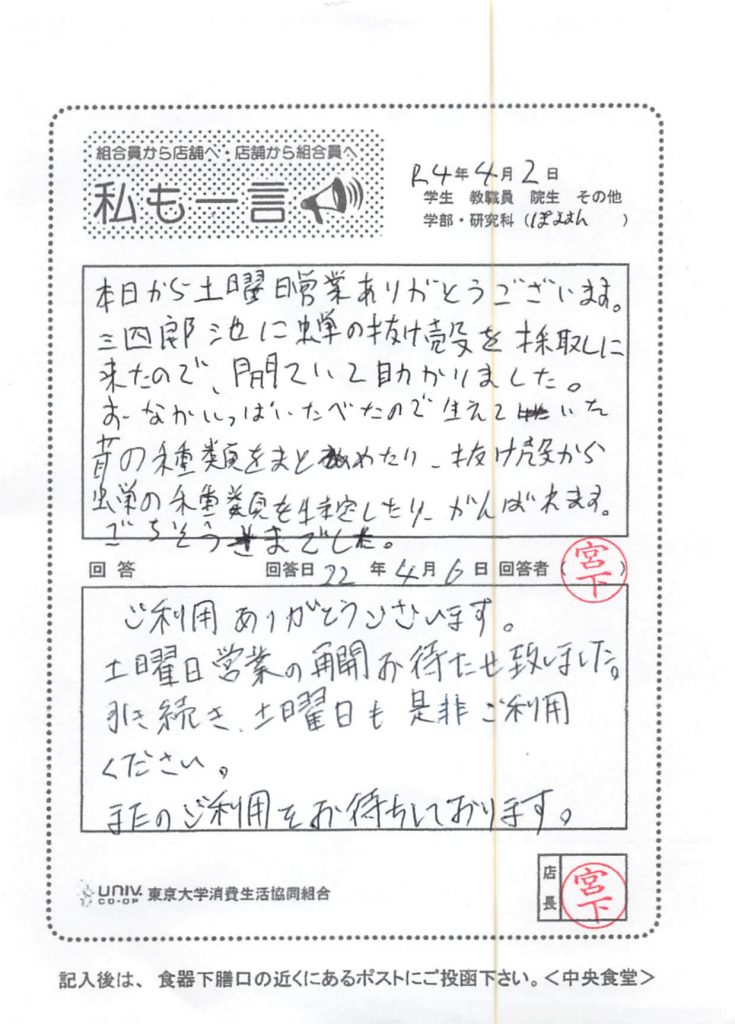 組合員から店舗へ・店舗から組合員へ
私も一言
R4年4月2日
学生 教職員 院生 その他
学部・研究科(ぽよよん)
本日から土曜日営業ありがとうございます。
三四郎池に蝉の抜け殻を採取しに
来たので、開ていて助かりました。
おーなかいっぱいたべたので生えていた
苔の種類をまとめたり、抜け殻から
蝉の種類を特定したり、がんばれます。
ごちそうさまでした。
回答 回答日22年4月6日 回答者(宮下)
ご利用ありがとうございます。
土曜日営業の再開お待たせ致しました。
引き続き、土曜日も是非ご利用
ください。
またのご利用をお待ちしております。
UNIV. CO-OP 東京大学消費生活協同組合
店長 宮下
記入後は、食器下膳口の近くにあるポストにご投函下さい。<中央食堂>